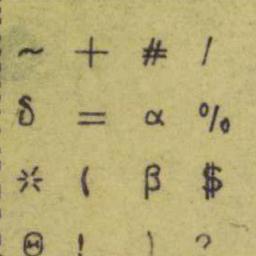 ~ + # /
δ = α %
※ ( β $
Θ ! ) ?